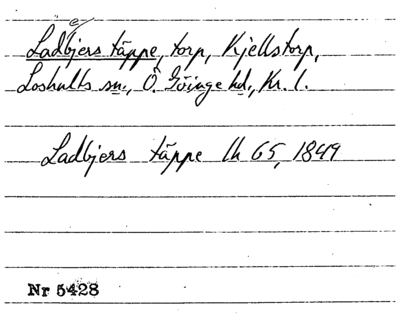 e/
Ladbjers täppe, torp, Kjellstorp,
Loshults sn., Ö. Göinge hd., Kr. l.
Ladbjers täppe lh 65, 1849
Nr 5428